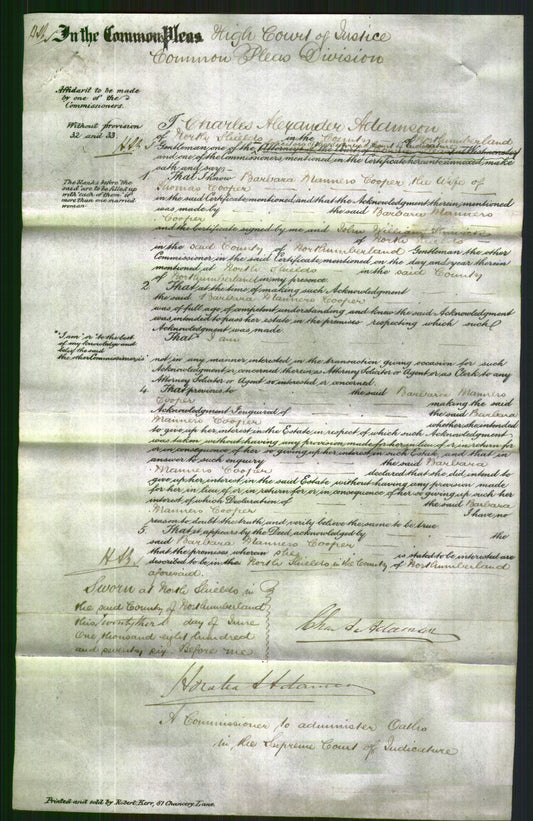 In the Common Pleas High Court of Justice
Common Pleas Division
Affidavit to be made
by one of the
Commissioners.
Without provision
32 and 33
I Charles Alexander Adamson
of North Shields in the County of Northumberland
Gentleman, one of the
and one of the Commissioners mentioned in the Certificate hereunto annexed make
oath and say:—
The blanks before the
said are to be filled up
with each of them if
more than one married
woman.
1 That I know Barbara Manners Cooper the Wife of
Thomas Cooper
in the said Certificate mentioned, and that the Acknowledgment therein mentioned
was made by the said Barbara Manners
Cooper
and the Certificate signed by me and John William
of North Shields
in the said County of Northumberland Gentleman the other
Commissioner in the said Certificate mentioned on the day and year therein
mentioned at North Shields in the said County
of Northumberland in my presence
2 That at the time of making such Acknowledgment
the said Barbara Manners Cooper
was of full age & of competent understanding and knew the said Acknowledgment
was intended to pass her estate in the premises respecting which such
Acknowledgment was made
"I am" or "to the best
of my knowledge and
belief the said
the other Commissioner is"
That I am
not in any manner interested in the transaction giving occasion for such
Acknowledgment or concerned therein as Attorney Solicitor or Agent or as Clerk to any
Attorney Solicitor or Agent so interested or concerned.
4 That previous to the said Barbara Manners
Cooper making the said
Acknowledgment I enquired of the said Barbara
Manners Cooper whether she intended
to give up her interest in the Estate in respect of which such Acknowledgment
was taken without having any provision made for her in lieu of or in return for
or in consequence of her so giving up her interest in such Estate, and that in
answer to such enquiry the said Barbara
Manners Cooper declared that she did intend to
give up her interest in the said Estate without having any provision made
for her in lieu of or in return for or in consequence of her so giving up such her
interest of which Declaration of the said Barbara
Manners Cooper I have no
reason to doubt the truth and verily believe the same to be true
5 That it appears by the Deed acknowledged by the
said Barbara Manners Cooper
that the premises wherein she is stated to be interested are
described to be in the North Shields in the County of Northumberland
aforesaid.
Sworn at North Shields in
the said County of Northumberland
this twentyther day of June
One thousand eight hundred
and seventy six. Before me
Chas A Adamson
Horatio A Adamson
A Commissioner to administer Oaths
in the Supreme Court of Judicature
Printed and sold by Robert Kerr, 67 Chancery Lane.